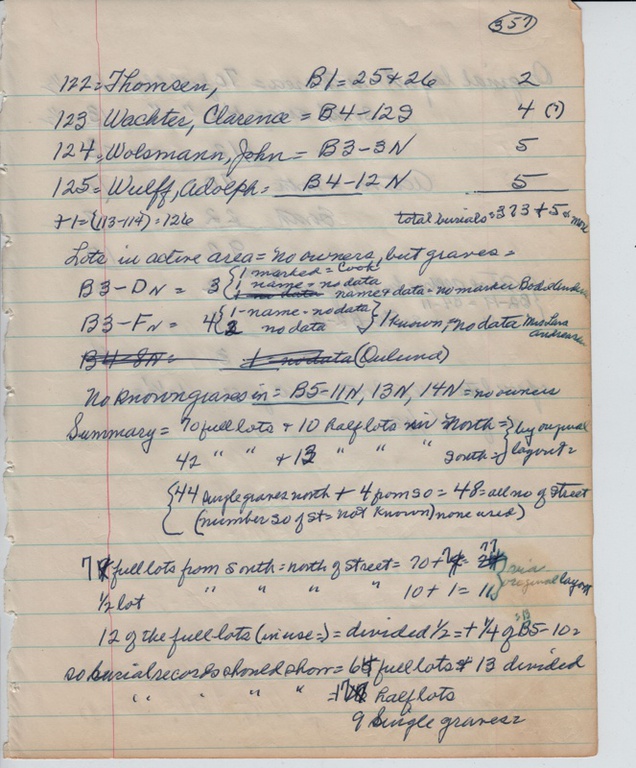 357
122 = Thomsen, B1 = 25 + 26 2
123 Wachter, Clarence = B4-12S 4 (?)
124 = Wolsmann, John = B3-3N 5
125 = Wulff, Adolph = B4-12N 5
+1 = (113-114) = 126 total burials = 373 + 5 + more
Lots in active area = no owners, but graves =
B3-DN = 3 { 1 marked = Cook
1 name = no data
name + data = no marker
B3-FN = 4 { 1 - name = no data
2 no data } 1 known, = no data Mrs Lars
Andreasen
B4-8N = 1 = no data (Oulund)
No known graves in = B5-11N, 13N, 14N = no owners
Summary = 70 full lots + 10 half lots in North = } by original
42 " " + 13 " " " South = layout =
{ 44 single graves north + 4 from so = 48 = all no of street
(number so of st = not known) none used)
7 full lots from South = north of street = 70 + 7 = 77 } via
1/2 lot " " " " 10 + 1 = 11 original layout
12 of the full lots (in use =) = divided 1/2 = + 1/4 of B5-10 = = 13
so burial records should show = 64 full lots + 13 divided
" " " " = 17 half lots
9 single graves =